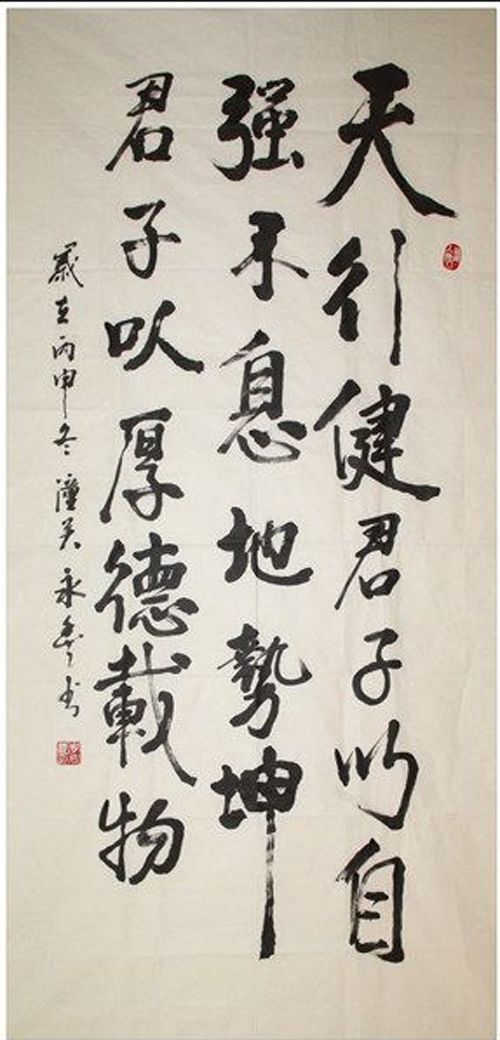 天行健君子以自
强不息地勢坤
君子以厚德載物
歲在丙申冬潼关永年书